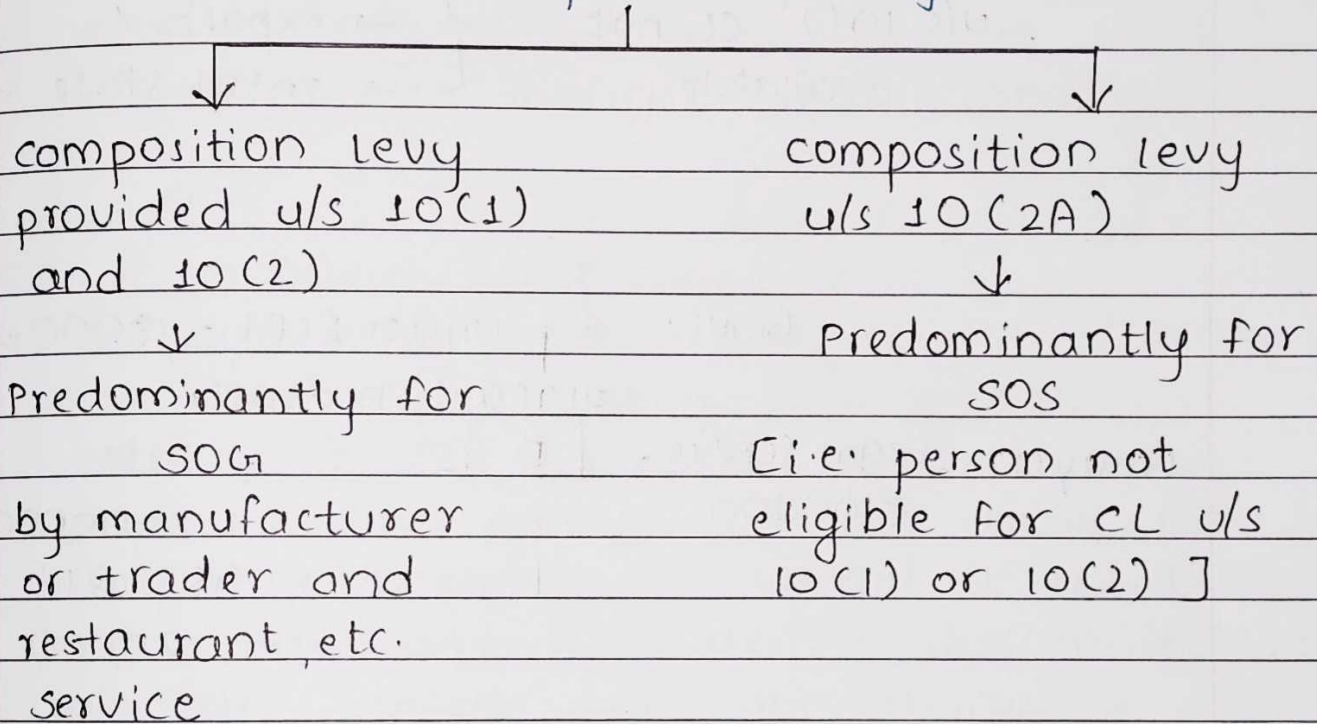 composition levy
provided u/s 10(1)
and 10(2)
Predominantly for
SOG
by manufacturer
or trader and
restaurant, etc.
service
composition levy
u/s 10(2A)
Predominantly for
SOS
[i.e. person not
eligible for CL u/s
10(1) or 10(2)]